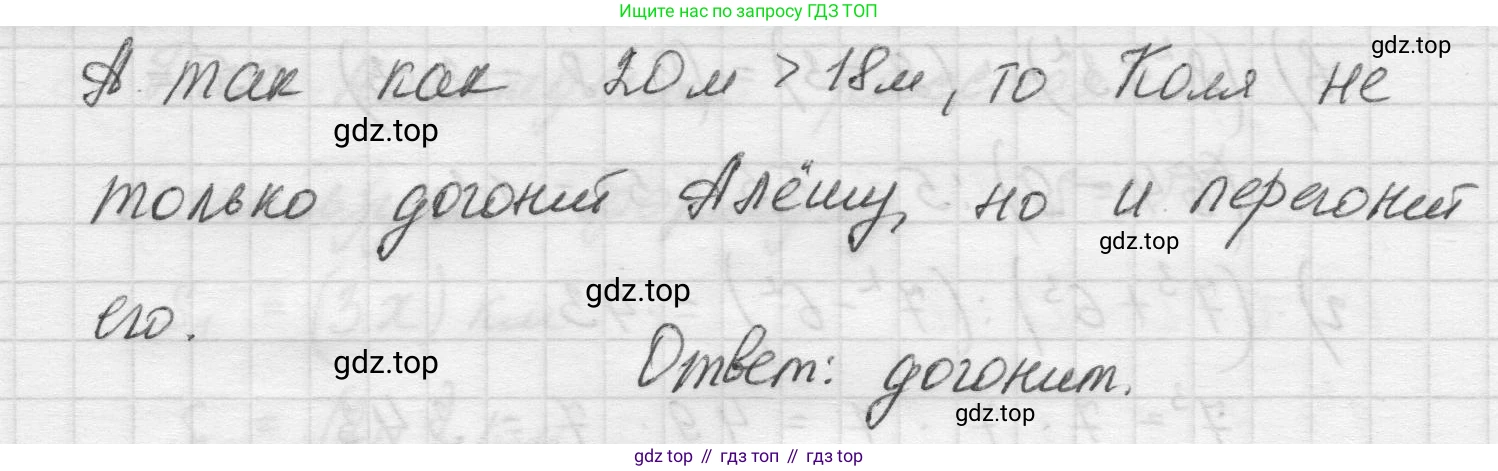 Ищите нас по запросу ГДЗ ТОП
gdz.top
А так как 20м > 18м, то Коля не
gdz.top
только догонит Алёшу, но и перегонит
gdz.top
gdz.top
его.
gdz.top
Ответ: догонит.
gdz.top
gdz top // гдз топ // гдз top